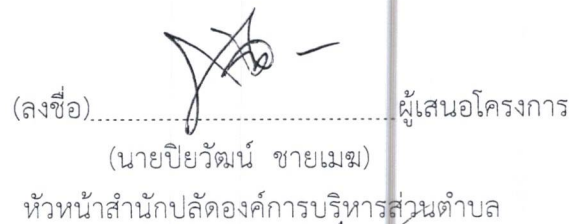 (ลงชื่อ)........................................ผู้เสนอโครงการ
(นายปิยวัฒน์ ชายเมฆ)
หัวหน้าสำนักปลัดองค์การบริหารส่วนตำบล